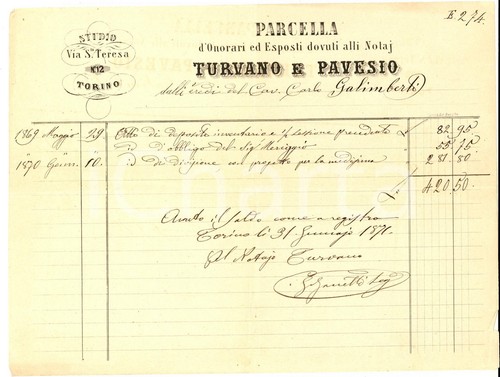 E. 274.
STUDIO
Via Sta. Teresa
N. 12
TORINO
PARCELLA
d'Onorari ed Esposti dovuti alli Notaj
TURVANO E PAVESIO
dalli eredi del Cav. Carlo Galimberti
1869 Maggio 29 Atto di deposito inventario e L. 82, 95
d'obbligo del Sig. 55, 75
1870 Genn. 10. di divisione con progetto per la medesima 281. 80
L. 420, 50.
Avuto il saldo come a registro
Torino li 31. Gennajo 1871.
Pel Notajo Turvano